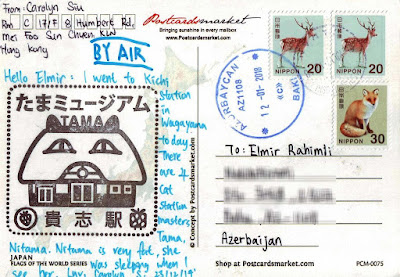 From: Carolyn Siu
Rm C 17/F 8 Humbert Rd.
Mei Foo Sun Chuen, KLN
Hong Kong
BY AIR
Postcardsmarket
Bringing sunshine in every mailbox
www.Postcardsmarket.com
NIPPON 20
NIPPON 20
NIPPON 30
AZƏRBAYCAN
AZ1108
12-01-2018
«C»
BAKI
Hello Elmir: I went to Kichi
Station
in
Wagayama
today.
There
are 4
Cat
Station
masters,
Tama,
Nitama. Nitama is very fat, she
was sleeping when I
see her.
たまミュージアム
TAMA
貴志駅
To: Elmir Rahimli
Azerbaijan
JAPAN
FLAGS OF THE WORLD SERIES
Shop at Postcardsmarket.com
PCM-0075